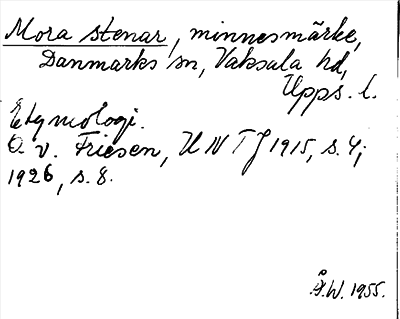 Mora stenar, minnesmärke,
Danmarks sn, Vaksala hd,
Upps. l.
Etymologi.
O. v. Friesen, UNTJ 1915, s. 4;
1926, s. 8.
Å.W. 1955.